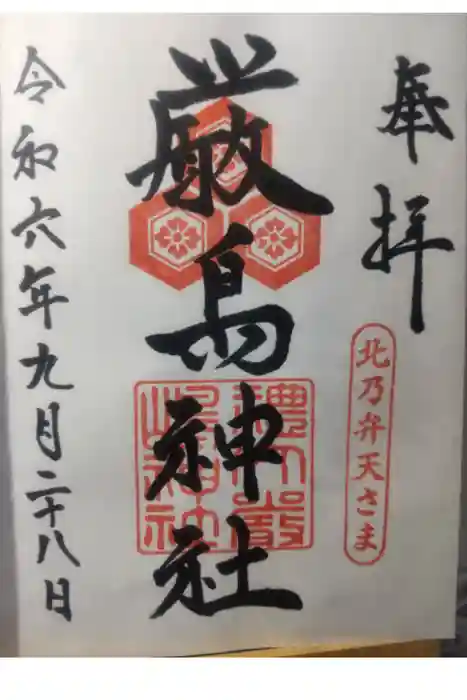 奉拝
北乃弁天さま
厳島神社
令和六年九月二十八日